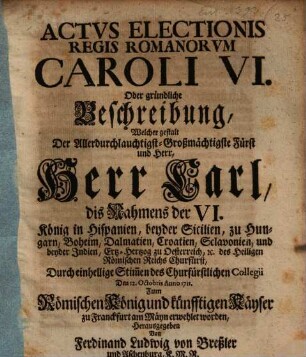 ACTVS ELECTIONIS
REGIS ROMANORVM
CAROLI VI.
Oder gründliche
Beschreibung/
Welcher gestalt
Der Allerdurchlauchtigst-Großmächtigste Fürst
und Herr,
Herr Carl/
dis Nahmens der VI.
König in Hispanien, beyder Sicilien, zu Hun-
garn, Boheim, Dalmatien, Croatien, Sclavonien, und
beyder Indien, Ertz-Hertzog zu Oesterreich, ꝛc. des Heiligen
Römischen Reichs Churfürst,
Durch einhellige Stimen des Churfürstlichen Collegii
Den 12. Octobris Anno 1711.
Zum
Römischen König und künfftigen Käyser
zu Franckfurt am Mäyn erwehlet worden,
Herausgegeben
Von
Ferdinand Ludwig von Breßler
und Aschenburg, E. M. R.